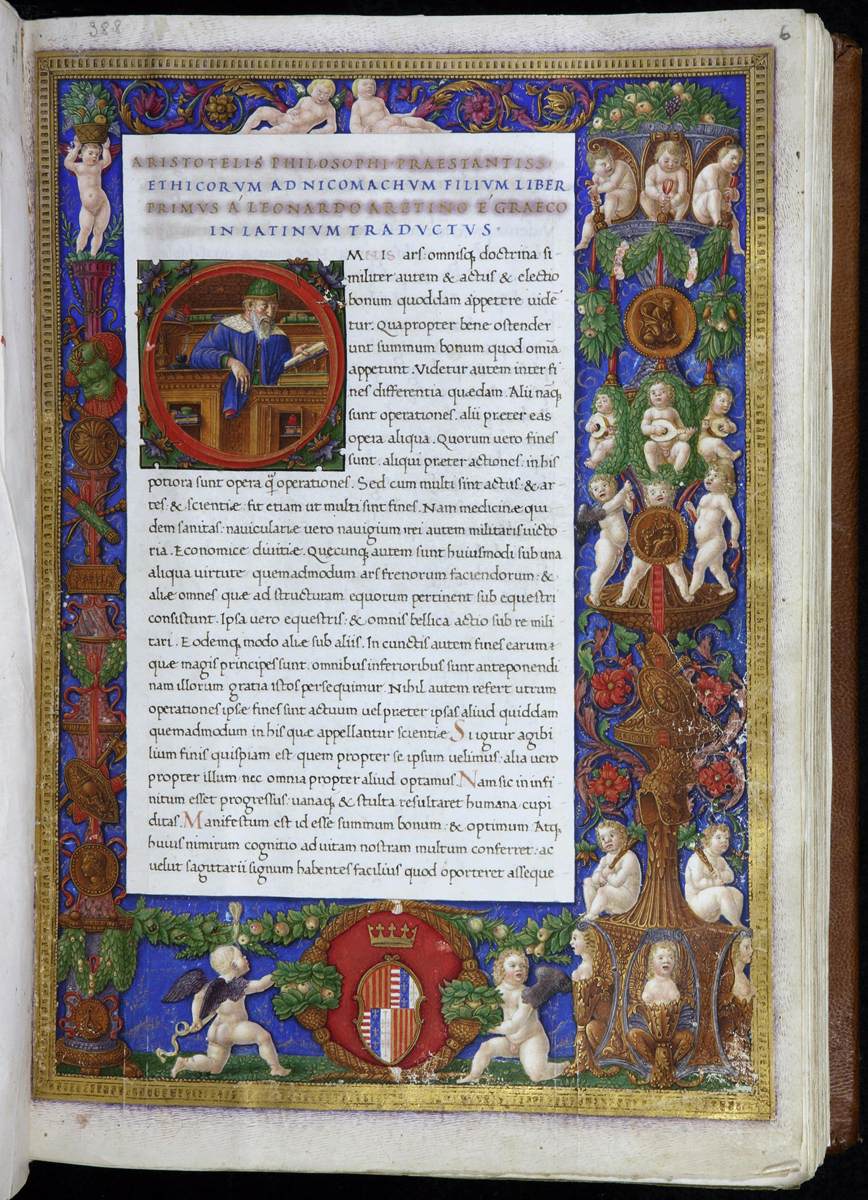 388
6
ARISTOTELIS PHILOSOPHI PRAESTANTISS
ETHICORVM AD NICOMACHVM FILIVM LIBER
PRIMVS A LEONARDO ARETINO E GRAECO
IN LATINVM TRADVCTVS
MNIS ars: omnisq; doctrina si
militer autem & actus & electio
bonum quoddam appetere vidē
tur. Quapropter bene ostender
unt summum bonum quod omīa
appetunt. Videtur autem inter fi
nes differentia quædam. Alii nāq;
sunt operationes. alii præter eas
opera aliqua. Quorum vero fines
sunt. aliqui præter actiones. in his
potiora sunt opera q̄ operationes. Sed cum multi sint actus & ar
tes & scientiæ fit etiam ut multi sint fines. Nam medicinæ qui
dem sanitas: naviculariæ vero navigium rei autem militaris victo
ria. Economice divitiæ. Quecunq; autem sunt huiusmodi sub una
aliqua virtute quemadmodum ars frenorum faciendorum: &
aliæ omnes quæ ad structuram equorum pertinent sub equestri
consistunt. Ipsa vero equestris: & omnis bellica actio sub re mili
tari. Eodemq; modo aliæ sub aliis. In cunctis autem fines earum:
quæ magis principes sunt. omnibus inferioribus sunt anteponendi
nam illorum gratia istos persequimur. Nihil autem refert utrum
operationes ipsæ fines sint actuum vel præter ipsas aliud quiddam
quemadmodum in his quæ appellantur scientiæ Si igitur agibi
lium finis quispiam est quem propter se ipsum velimus: alia vero
propter illum nec omnia propter aliud optamus. Nam sic in infi
nitum esset progressus: vanaq; & stulta resultaret humana cupi
ditas. Manifestum est id esse summum bonum: & optimum. Atq;
huius nimirum cognitio ad vitam nostram multum conferret: ac
velut sagittarii signum habentes facilius quod oporteret asseque